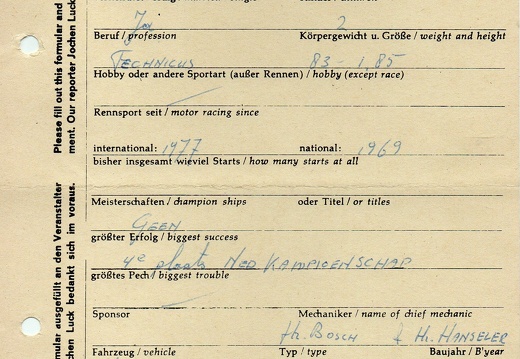 Ja 2
Beruf / profession Körpergewicht u. Größe / weight and height
TECHNICUS 83 - 1,85
Hobby oder andere Sportart (außer Rennen) / hobby (except race)
Rennsport seit / motor racing since
international: 1977 national: 1969
bisher insgesamt wieviel Starts / how many starts at all
Meisterschaften / champion ships oder Titel / or titles
GEEN
größter Erfolg / biggest success
4e plaats NED KAMPIOENSCHAP
größtes Pech / biggest trouble
Sponsor Mechaniker / name of chief mechanic
Hr. BOSCH & Hr. HANSELER
Fahrzeug / vehicle Typ / type Baujahr / B'year
Please fill out this formular and
ment. Our reporter Jochen Luck
mular ausgefüllt an den Veranstalter
chen Luck bedankt sich im voraus.